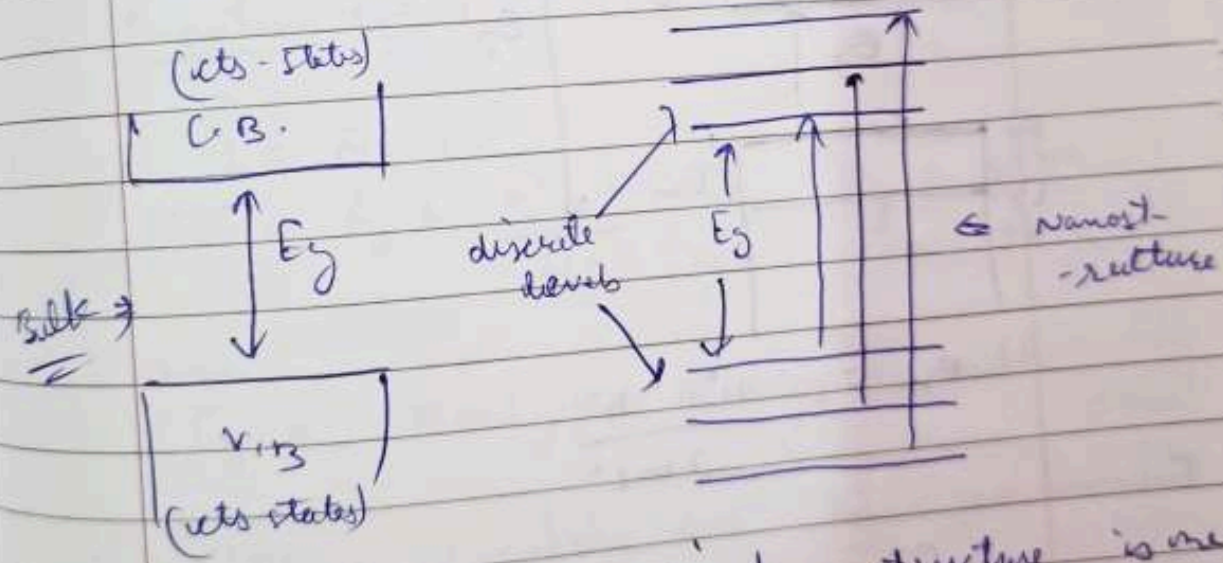 (cts-states)
C.B.
Eg
Bulk ⇒
V.B
(cts states)
discrete
levels
Eg
⇐ Nanost-
-rutture
structure is